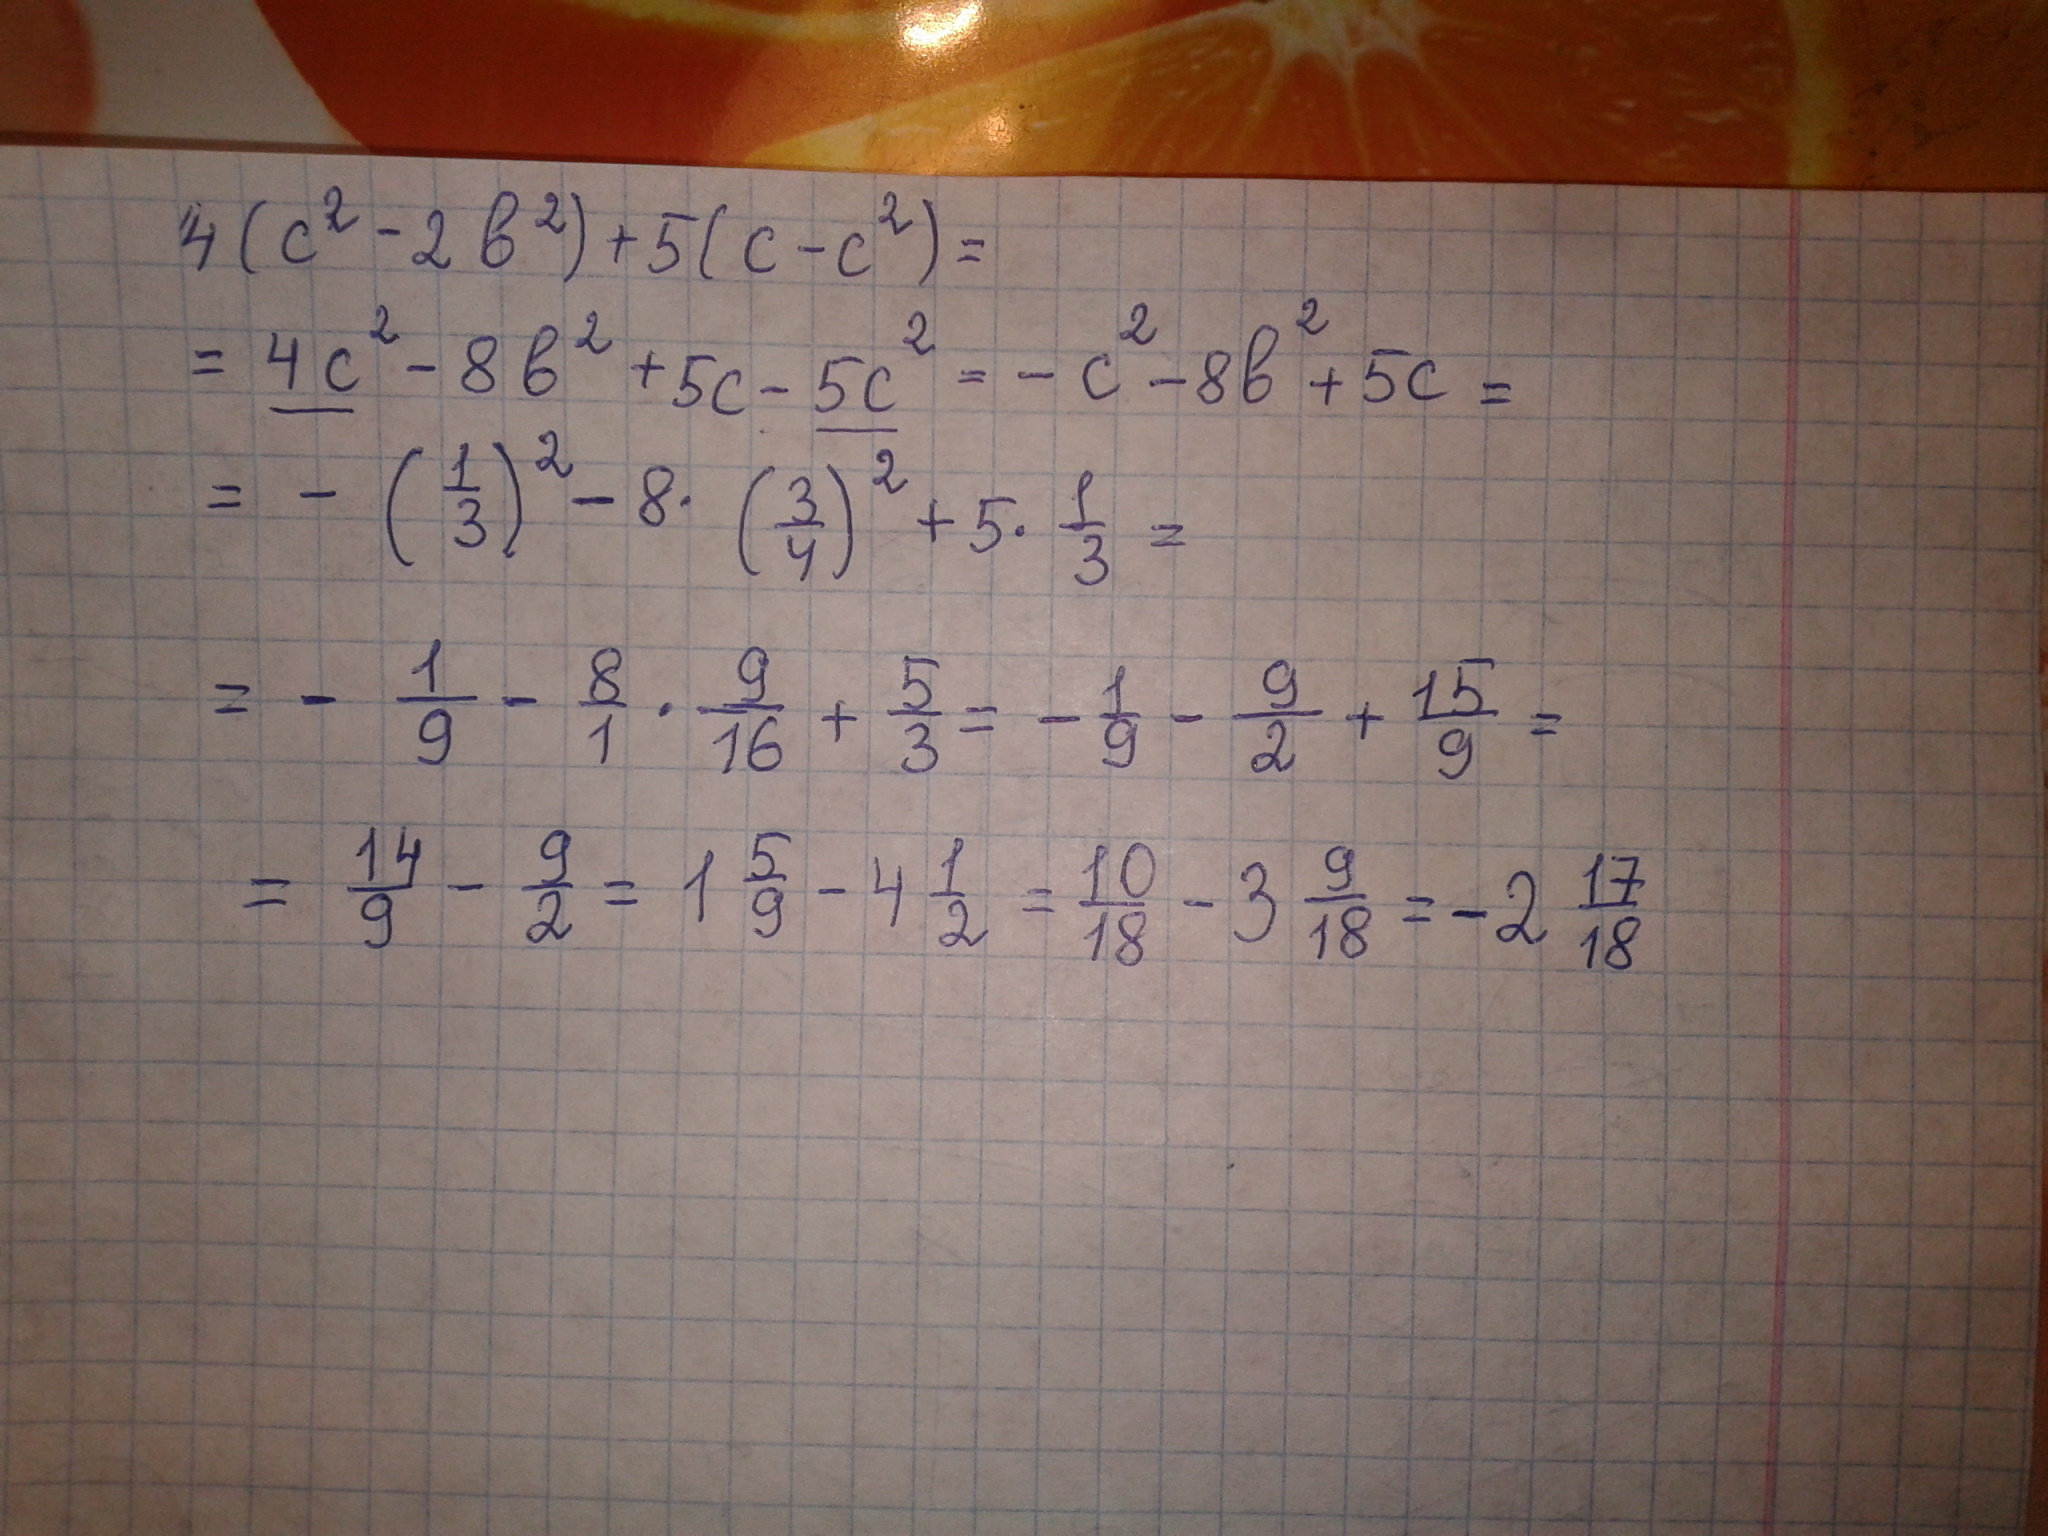 4(c² - 2b²) + 5(c - c²) =
= 4c² - 8b² + 5c - 5c² = - c² - 8b² + 5c =
= - (1/3)² - 8 · (3/4)² + 5 · 1/3 =
= - 1/9 - 8/1 · 9/16 + 5/3 = - 1/9 - 9/2 + 15/9 =
= 14/9 - 9/2 = 1 5/9 - 4 1/2 = 10/18 - 3 9/18 = - 2 17/18